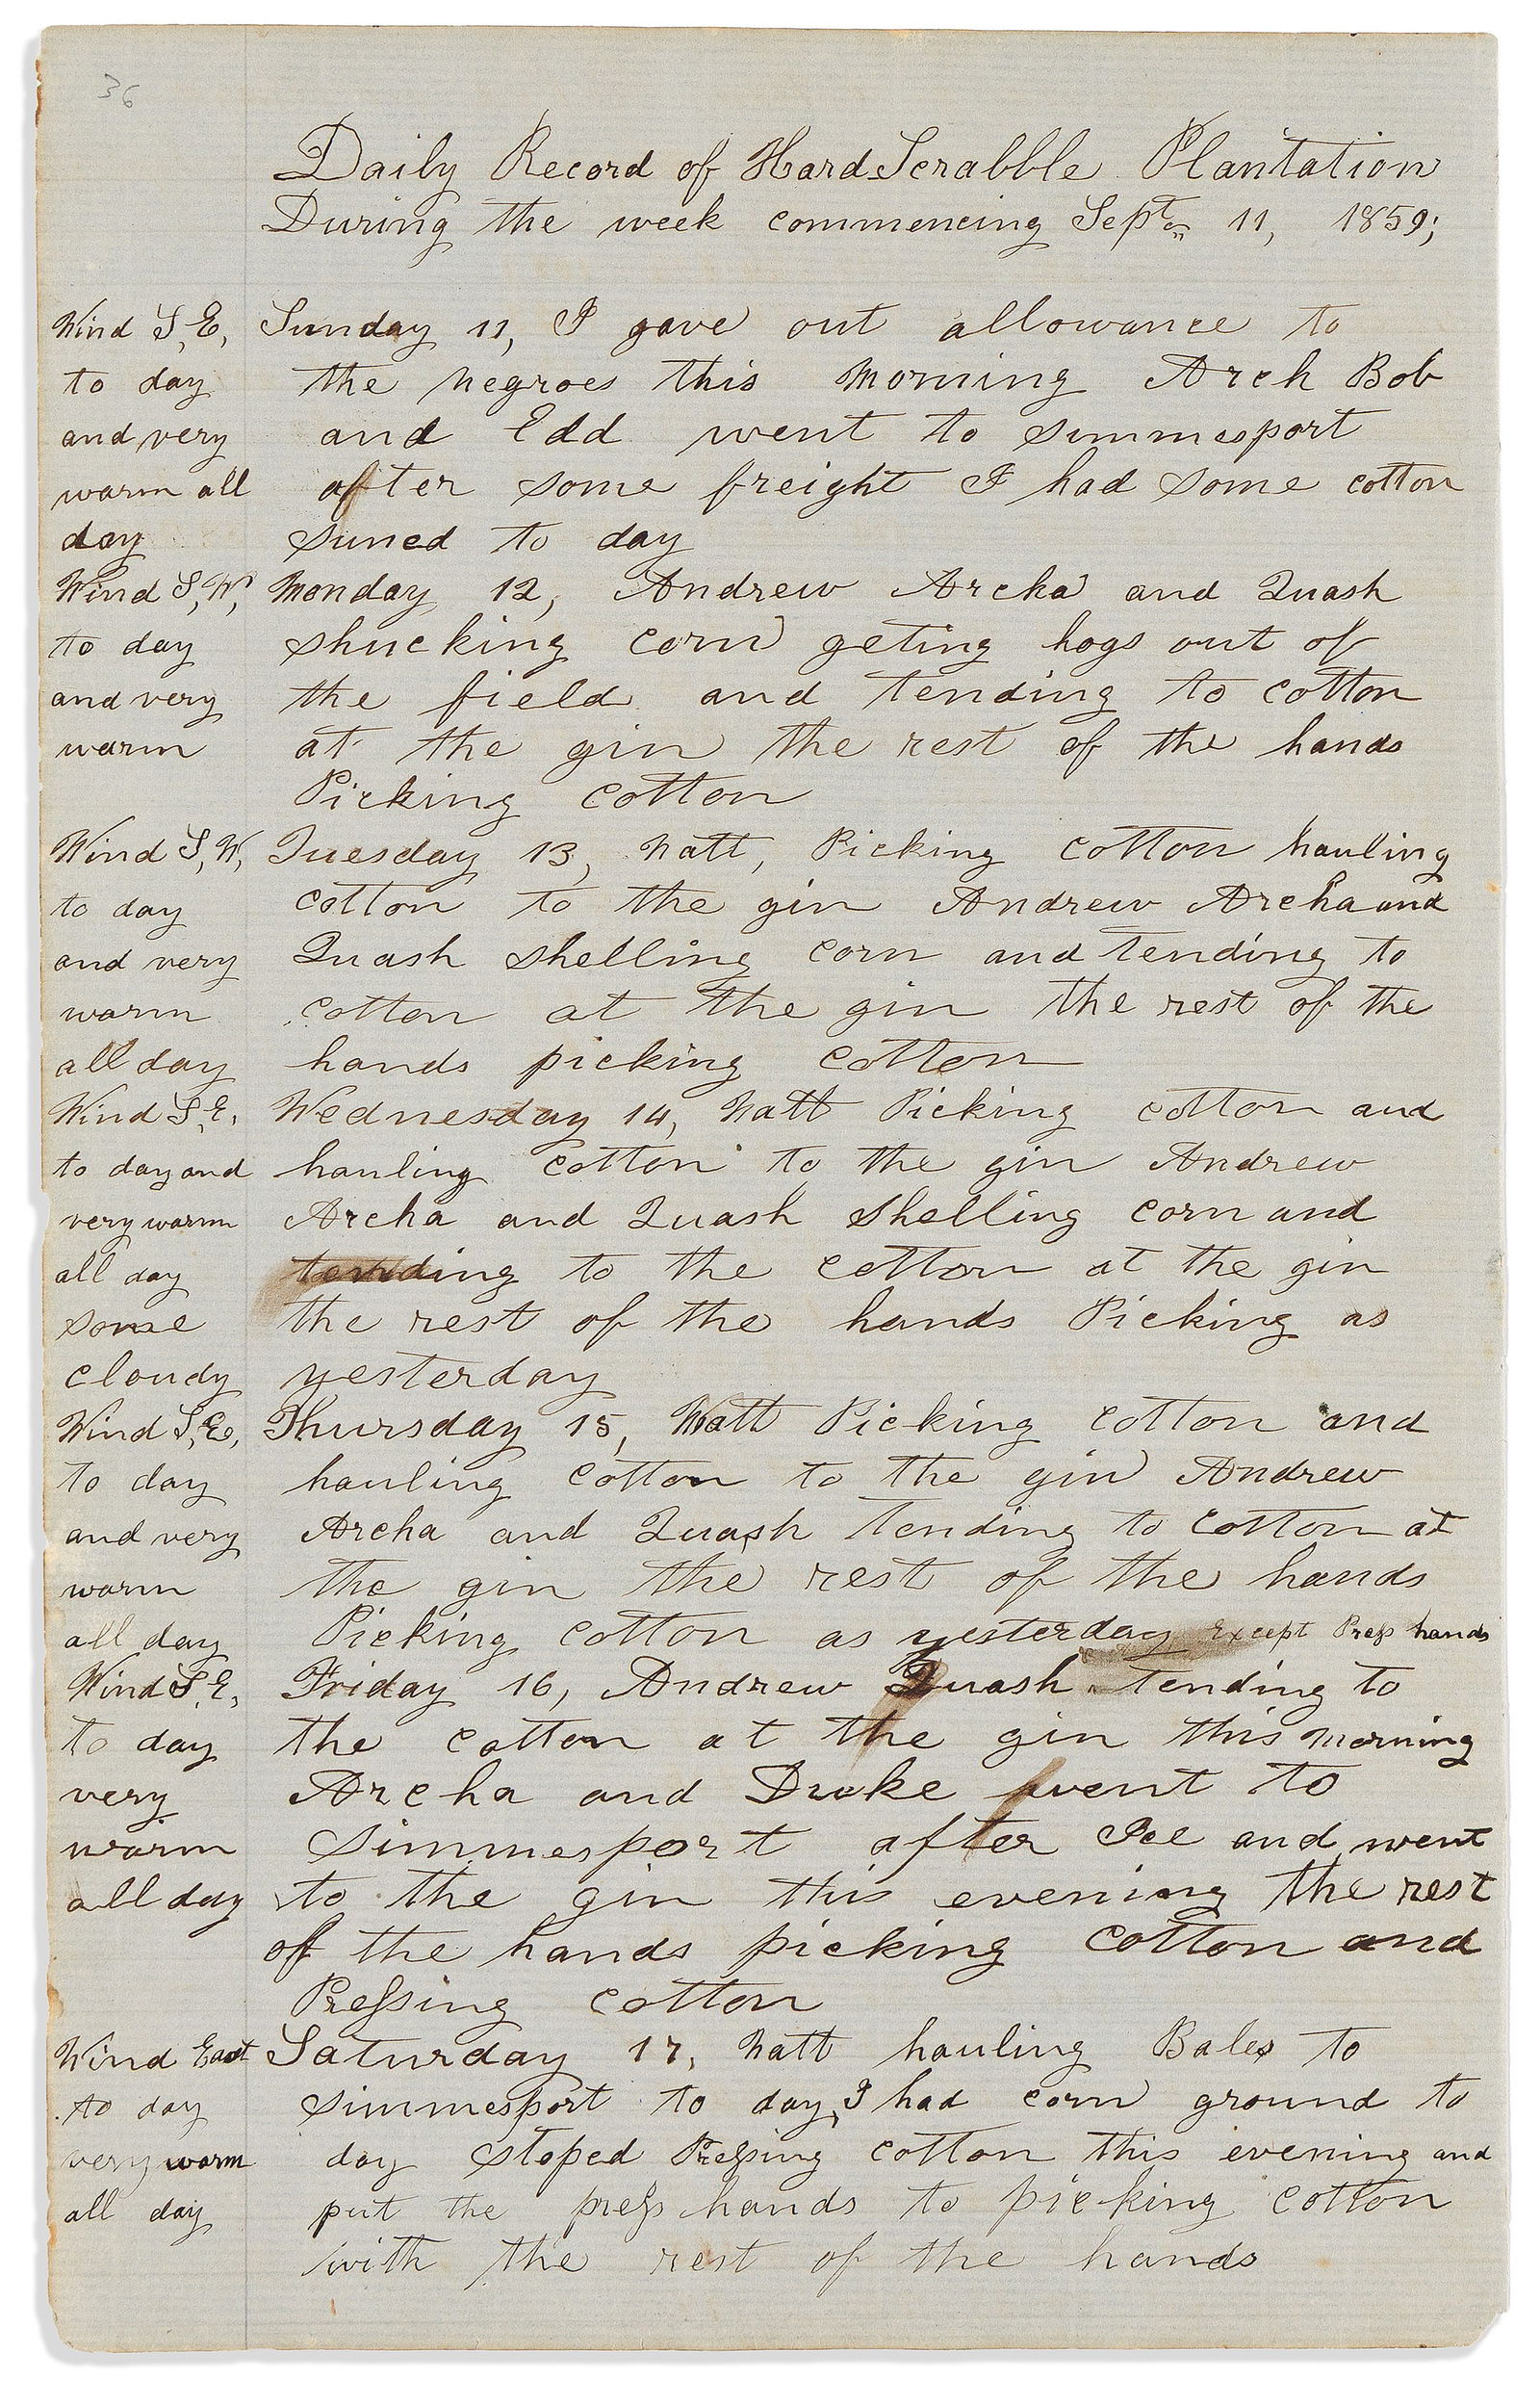 36
Daily Record of HardScrabble Plantation
During the week commencing Sept. 11, 1859;
Wind S, E, Sunday 11, I gave out allowance to
to day the negroes this morning Arch Bob
and very and Edd went to simmesport
warm all after some freight I had some cotton
day suned to day
Wind S, W, Monday 12, Andrew Archa and Quash
to day shucking corn geting hogs out of
and very the field and tending to cotton
warm at the gin the rest of the hands
Picking cotton
Wind S, W, Tuesday 13, Natt, Picking cotton hauling
to day cotton to the gin Andrew Archa and
and very Quash shelling corn and tending to
warm cotton at the gin the rest of the
all day hands picking cotton
Wind S, E, Wednesday 14, Natt Picking cotton and
to day and hauling cotton to the gin Andrew
very warm Archa and Quash shelling corn and
all day tending to the cotton at the gin
some the rest of the hands Picking as
cloudy yesterday
Wind S, E, Thursday 15, Natt Picking cotton and
to day hauling cotton to the gin Andrew
and very Archa and Quash tending to cotton at
warm the gin the rest of the hands
all day Picking cotton as yesterday Except Press hands
Wind S, E, Friday 16, Andrew Quash tending to
to day the cotton at the gin this morning
very Archa and Duke went to
warm simmesport after Ice and went
all day to the gin this evening the rest
of the hands picking cotton and
Pressing cotton
Wind East Saturday 17, Natt hauling Bales to
to day simmesport to day, I had corn ground to
very warm day stoped Pressing cotton this evening and
all day put the press hands to picking cotton
with the rest of the hands